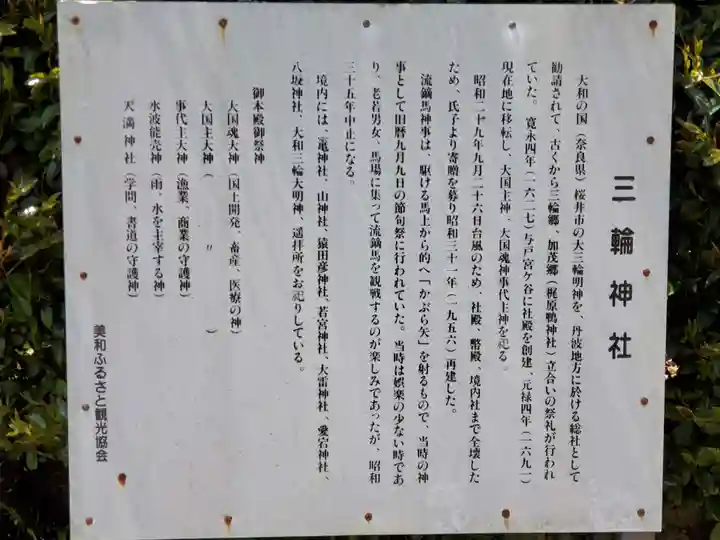 三輪神社
大和の国（奈良県）桜井市の大三輪明神を、丹波地方に於ける総社として
勧請されて、古くから三輪郷、加茂郷（梶原鴨神社）立合いの祭礼が行われ
ていた。寛永四年（一六二七）与戸宮ケ谷に社殿を創建、元禄四年（一六九一）
現在地に移転し、大国主神、大国魂神事代主神を祀る。
昭和二十九年九月二十六日台風のため、社殿、幣殿、境内社まで全壊した
ため、氏子より寄贈を募り昭和三十一年（一九五六）再建した。
流鏑馬神事は、駆ける馬上から的へ「かぶら矢」を射るもので、当時の神
事として旧暦九月九日の節句祭に行われていた。当時は娯楽の少ない時であ
り、老若男女、馬場に集って流鏑馬を観戦するのが楽しみであったが、昭和
三十五年中止になる。
境内には、竃神社、山神社、猿田彦神社、若宮神社、大雷神社、愛宕神社、
八坂神社、大和三輪大明神、遥拝所をお祀りしている。
御本殿御祭神
大国魂大神（国土開発、畜産、医療の神）
大国主大神（　〃　）
事代主大神（漁業、商業の守護神）
水波能売神（雨、水を主宰する神）
天満神社（学問、書道の守護神）
美和ふるさと観光協会